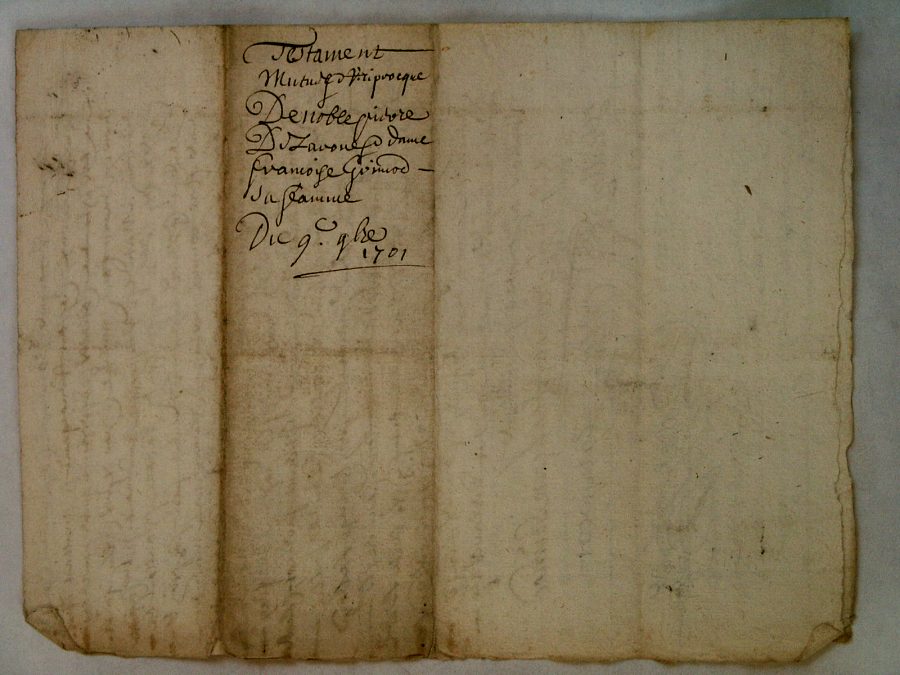 Testament
Mutuel & Reciprocque
De noble pierre
De Lavone & dame
francoise Grimod
sa famme
Du 9e. 9bre
1701